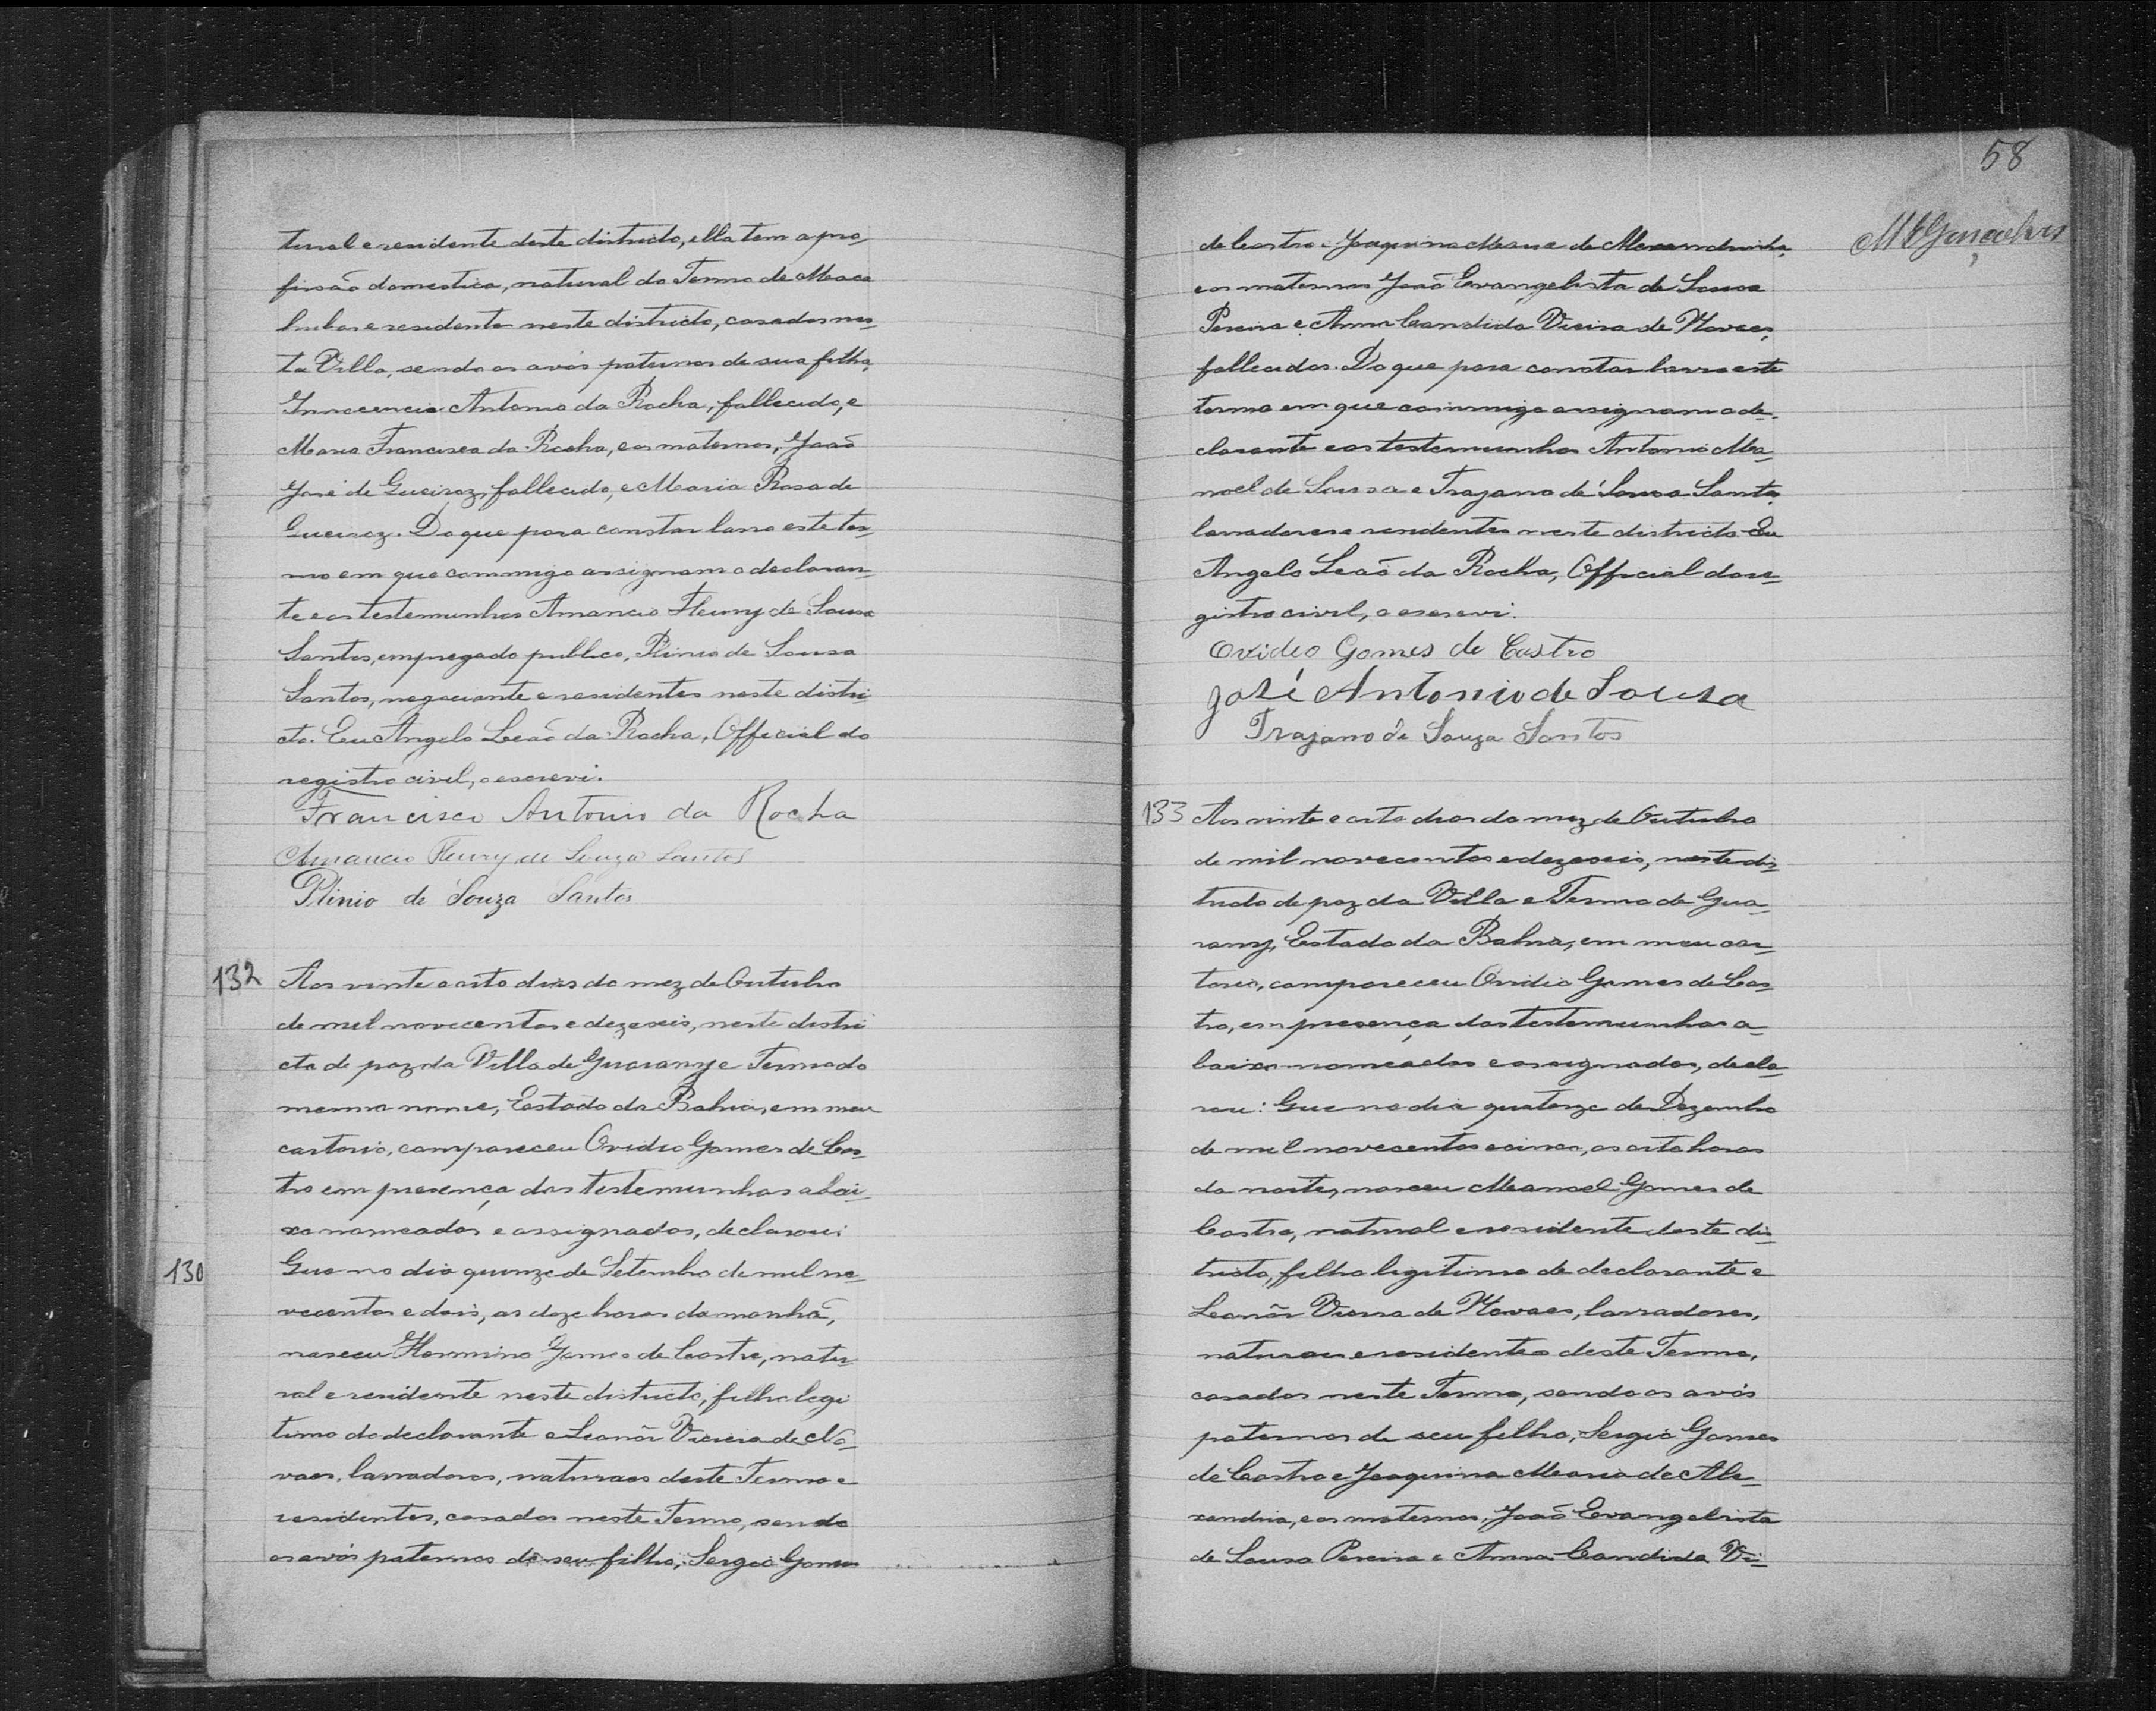 tural e residente deste districto, ella tem a pro-
fissão domestica, natural do Termo de Maca
hubas e residente neste districto, casados nes-
ta Villa, sendo os avós paternos de sua filha,
Innocencio Antonio da Rocha, fallecido, e
Maria Francisca da Rocha, e os maternos, João
José de Queiroz, fallecido, e Maria Rosa de
Queiroz. Do que para constar lavro este ter-
mo em que commigo assignam o declaran-
te e as testemunhas Amancio Fleury de Sousa
Santos, empregado publico, Plinio de Sousa
Santos, negociante e residentes neste distri-
cto. Eu Angelo Leão da Rocha, Official do
registro civil, o escrevi.
Francisco Antonio da Rocha
Amancio Fleury de Souza Santos
Plinio de Souza Santos
132 Aos vinte e oito dias do mez de Outubro
de mil novecentos e dezeseis, neste distri
cto de paz da Villa de Guarany e Termo do
mesmo nome, Estado da Bahia, em meu
cartorio, compareceu Ovidio Gomes de Cas-
tro em presença das testemunhas abai-
xo nomeadas e assignadas, declarou:
130 Que no dia quinze de Setembro de mil no-
vecentos e dois, as doze horas da manhã,
nasceu Hermino Gomes de Castro, natu-
ral e residente neste districto, filho legi
timo do declarante e Leonôr Vieira de No-
vaes, lavradores, naturaes deste Termo e
residentes, casados neste Termo, sendo
os avós paternos de seu filho, Sergio Gomes
58
de Castro e Joaquina Maria de Alexandria,
e os maternos João Evangelista de Sousa
Pereira e Anna Candida Vieira de Novaes,
fallecidos. Do que para constar lavro este
termo em que commigo assignam o de-
clarante e as testemunhas Antonio Ma-
noel de Sousa e Trajano de Sousa Santos,
lavradores e residentes neste districto. Eu
Angelo Leão da Rocha, Official do re-
gistro civil, o escrevi.
Ovideo Gomes de Castro
José Antonio de Sousa
Trajano de Souza Santos
133 Aos vinte e oito dias do mez de Outubro
de mil novecentos e dezeseis, neste dis-
tricto de paz da Villa e Termo de Gua-
rany, Estado da Bahia, em meu car-
torio, compareceu Ovidio Gomes de Cas-
tro, em presença das testemunhas a-
baixo nomeadas e assignadas, decla-
rou: Que no dia quatorze de Dezembro
de mil novecentos e cinco, as oito horas
da noite, nasceu Manoel Gomes de
Castro, natural e residente deste dis-
tricto, filho legitimo de declarante e
Leonôr Vieira de Novaes, lavradores,
naturaes e residentes deste Termo,
casados neste Termo, sendo os avós
paternos de seu filho, Sergio Gomes
de Castro e Joaquina Maria de Ale-
xandria, e os maternos, João Evangelista
de Sousa Pereira e Anna Candida Vi-